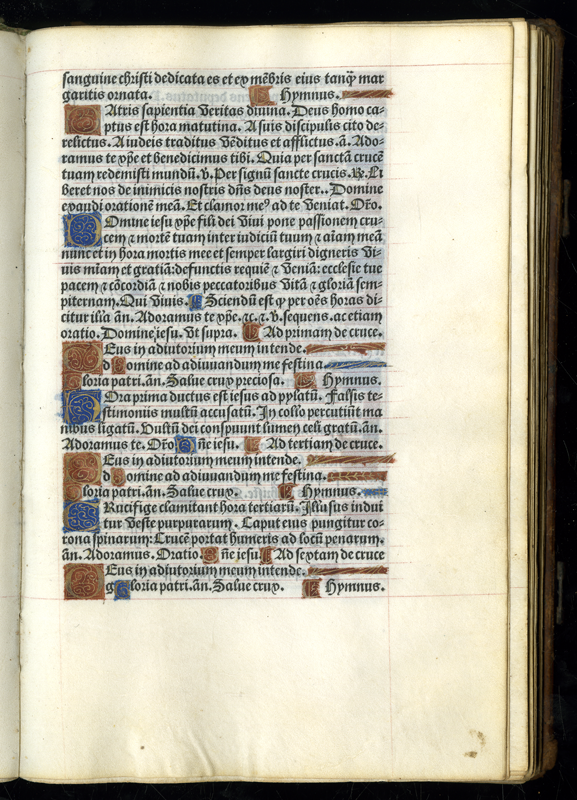 sanguine christi dedicata es et ex mẽbris eius tanq̃ mar
garitis ornata. Hymnus.
PAtris sapientia veritas divina. Deus homo ca-
ptus est hora matutina. A suis discipulis cito de-
relictus. A iudeis traditus vẽditus et afflictus. ã. Ado-
ramus te xp̃e et benedicimus tibi. Quia per sanctã crucẽ
tuam redemisti mundũ. v. Per signũ sancte crucis. ℟. Li
beret nos de inimicis nostris dñs deus noster.. Domine
exaudi orationẽ meã. Et clamor me9 ad te veniat. Or̃o.
DOmine iesu xp̃e fili dei vivi pone passionem cru-
cem ⁊ mortẽ tuam inter iudiciũ tuum ⁊ aĩam meã
nunc et in hora mortis mee et semper largiri digneris vi-
uis miam et gratiã: defunctis requiẽ ⁊ veniã: ecclesie tue
pacem ⁊ cõcordiã ⁊ nobis peccatoribus vitã ⁊ gloriã sem-
piternam. Qui viuis. Sciendũ est ꝙ per oẽs horas di-
citur illa añ. Adoramus te xp̃e. ⁊c. ⁊. v. sequens. ac etiam
oratio. Domine iesu. vt supra. Ad primam de cruce.
DEus in adiutorium meum intende.
dDomine ad adiuuandum me festina.
Gloria patri. añ. Salue crux preciosa. Hymnus.
HOra prima ductus est iesus ad pylatũ. Falsis te-
stimoniis multũ accusatũ. In collo percutiũt ma
nibus ligatũ. Vultũ dei conspuunt lumen celi gratũ. añ.
Adoramus te. Or̃o Dñe iesu. Ad tertiam de cruce.
DEus in adiutorium meum intende.
dDomine ad adiuuandum me festina.
Gloria patri. añ. Salue crux. Hymnus.
CRucifige clamitant hora tertiarũ. Illusus indui
tur veste purpurarum. Caput eius pungitur co-
rona spinarum: Crucẽ portat humeris ad locũ penarum.
añ. Adoramus. Oratio. Dñe iesu. Ad sextam de cruce
DEus in adiutorium meum intende.
gGloria patri. añ. Salue crux. Hymnus.